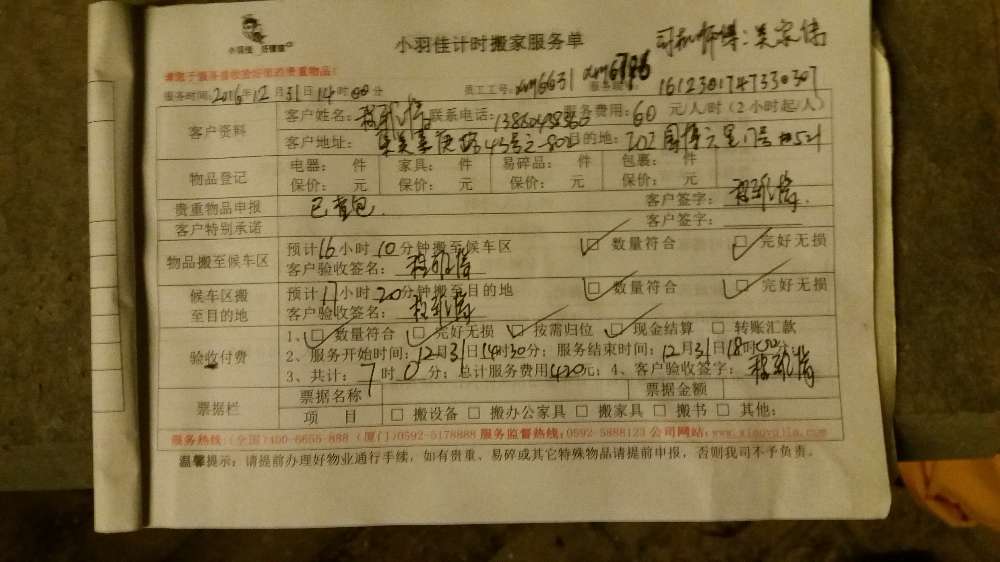 小羽佳计时搬家服务单 司机师傅:吴家伟
服务时间:2016年12月31日14时00分 员工工号:xm6631 xm6786 1612301747330307
客户资料 客户姓名: 联系电话: 服务费用:60元/人/时(2小时起/人)
客户地址: 目的地:
物品登记 电器: 件 家具: 件 易碎品: 件 包裹: 件
保价: 元 保价: 元 保价: 元 保价: 元
贵重物品申报 已查包 客户签字:
客户特别承诺 客户签字:
物品搬至候车区 预计16小时10分钟搬至候车区 □ 数量符合 □ 完好无损
客户验收签名:
候车区搬至目的地 预计17小时20分钟搬至目的地 □ 数量符合 □ 完好无损
客户验收签名:
验收付费 1、□ 数量符合 □ 完好无损 □ 按需归位 □ 现金结算 □ 转账汇款
2、服务开始时间:12月31日14时30分;服务结束时间:12月31日18时00分;
3、共计:7时0分;总计服务费用420元;4、客户验收签字:
票据栏 票据名称 票据金额
项 目 □ 搬设备 □ 搬办公家具 □ 搬家具 □ 搬书 □ 其他:
服务热线:(全国)400-6655-888 (厦门)0592-5178888 服务监督热线:0592-5888123 公司网站:www.xiaoyujia.com
温馨提示:请提前办理好物业通行手续,如有贵重、易碎或其它特殊物品请提前申报,否则我司不予负责。